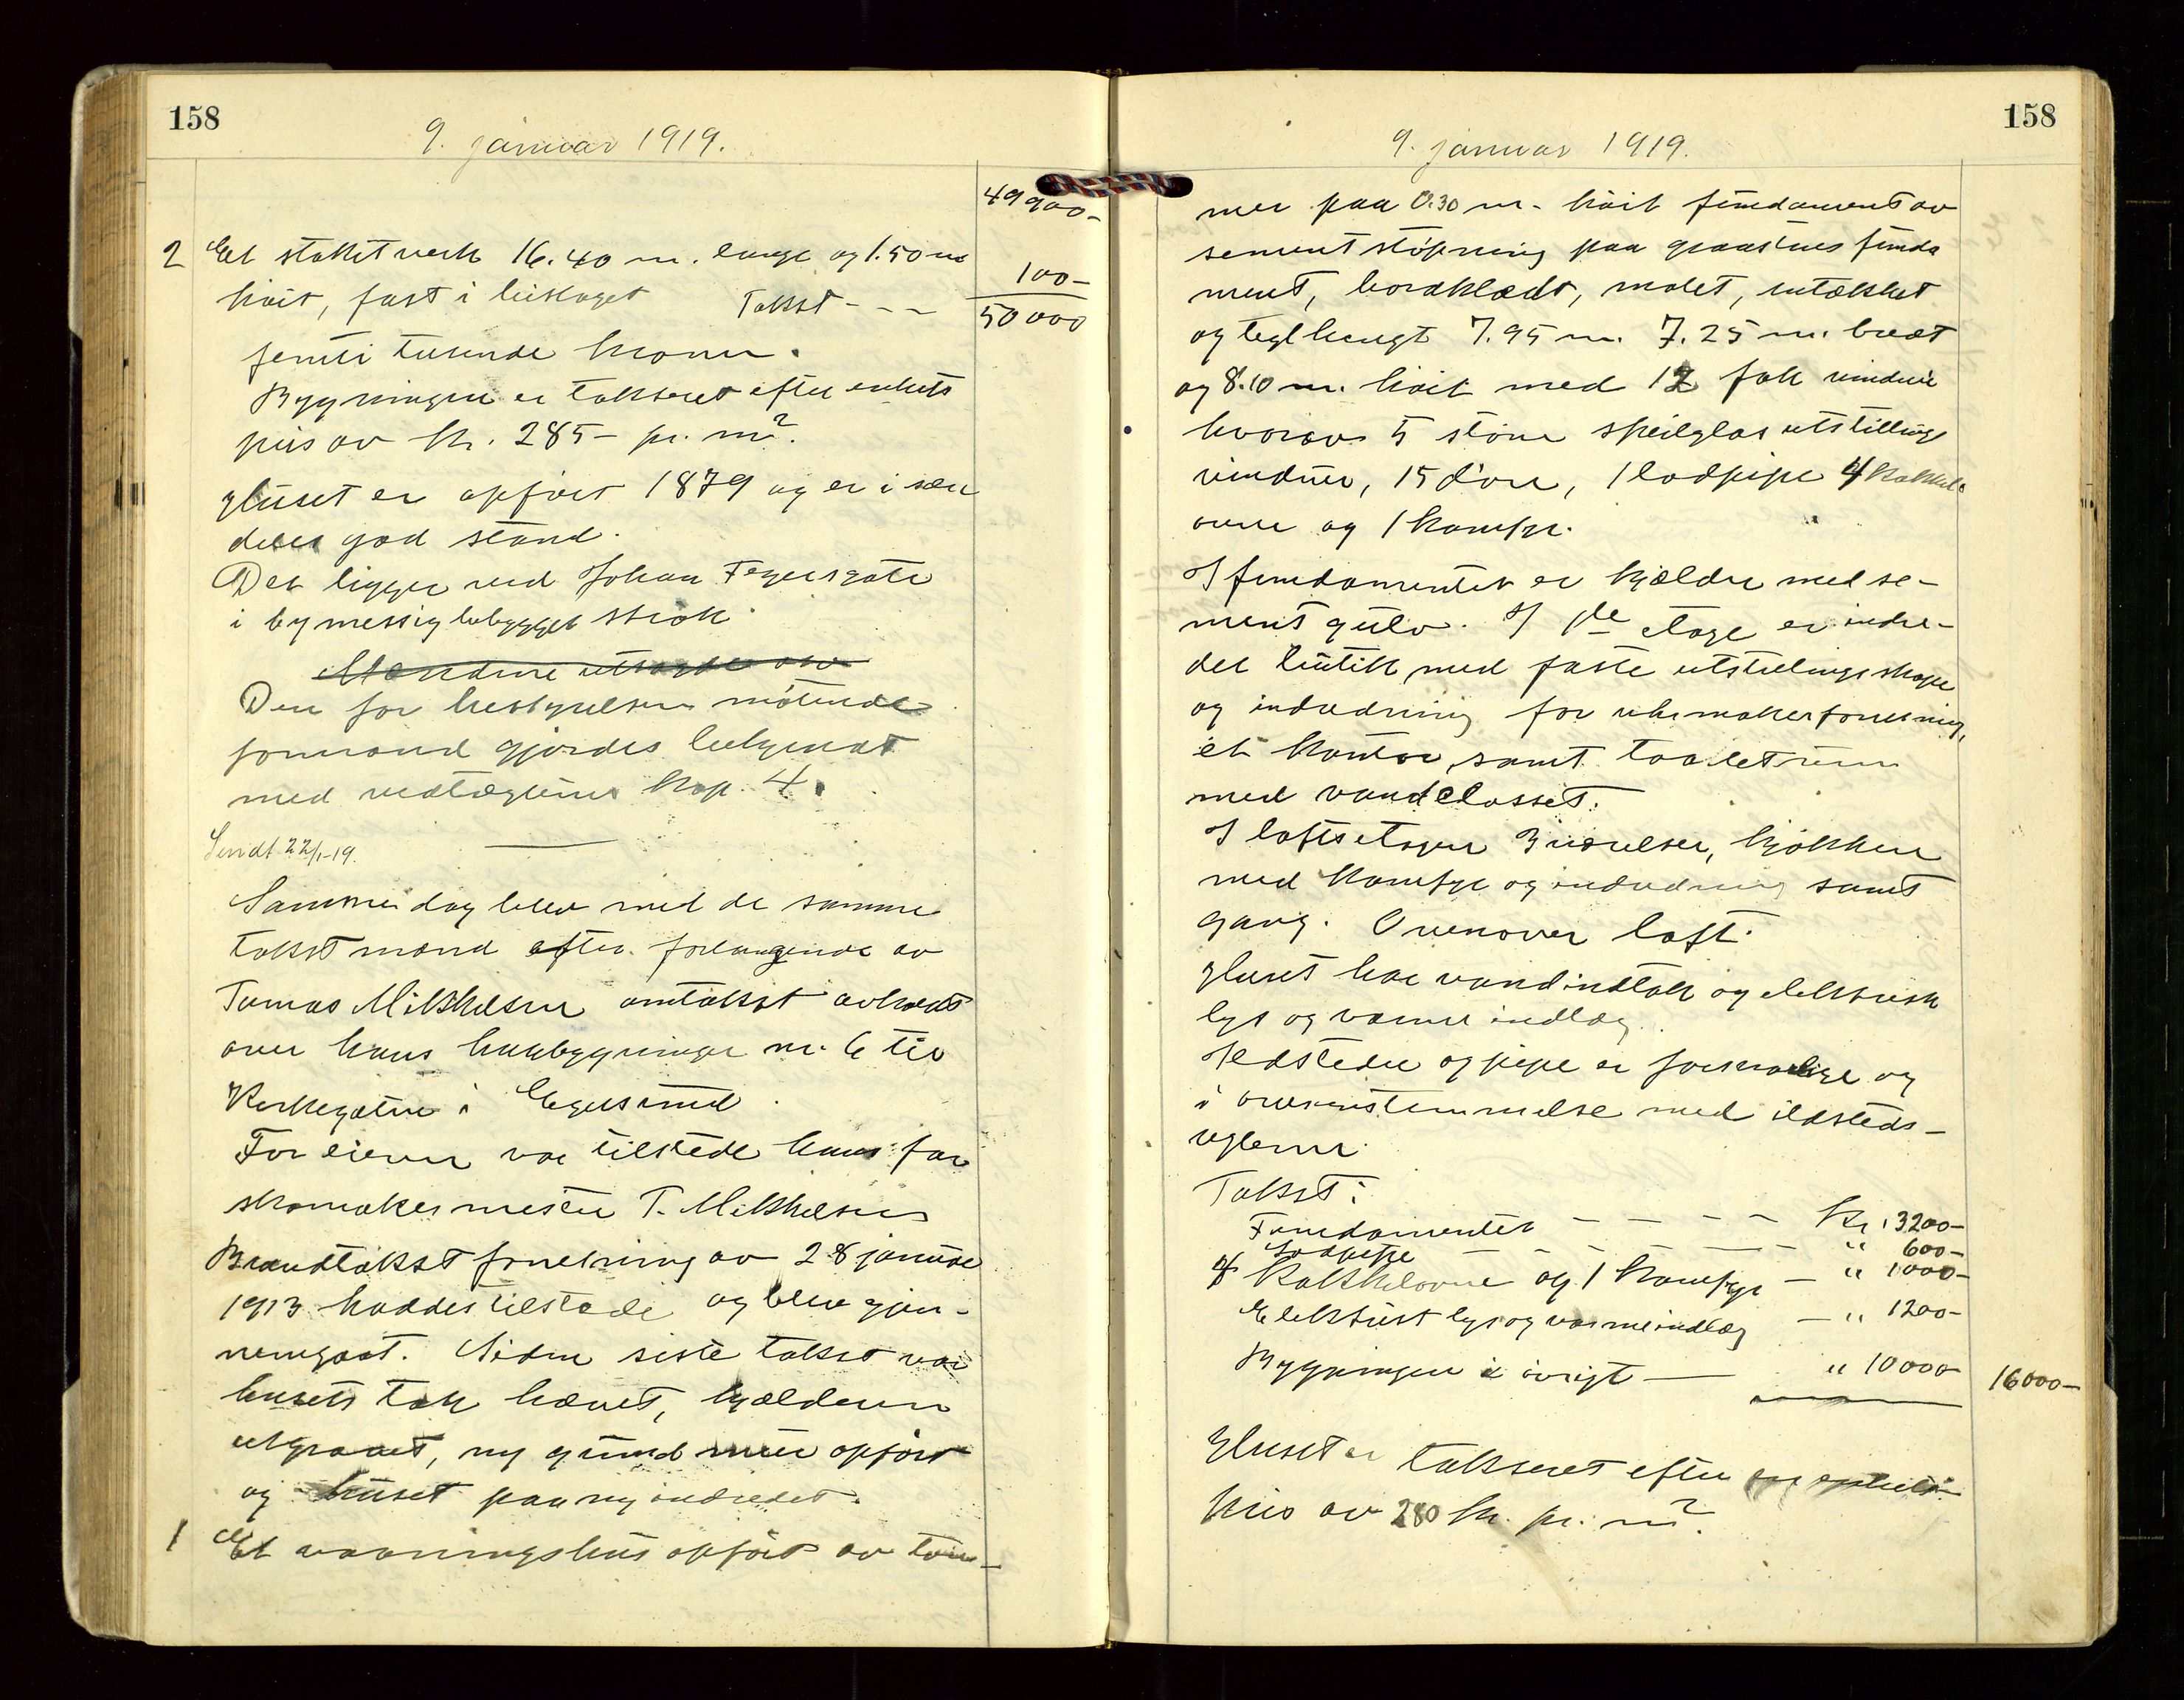 158
9. januar 1919.
49900-
2 Et stakitverk 16.40 m. langt og 1.50 m
høit, fast i
Takst - - - 100-
50000
femti tusende kroner.
Bygningen er taksert efter enhets
pris av kr. 285- pr. m².
Huset er opført 1879 og er i sær
deles god stand.
Det ligger ved Johan Feyersgate
i bymessig bebygget strøk.
Mændene utsagde
Den for bestyrelsen møtende
formand gjordes bekjendt
med vedtægternes kap. 4.
Sendt 22/1-19.
Samme dag blev med de samme
takstmænd efter forlangende av
Tomas Mikkelsen omtakst avholdt
over hans husbygninger nr. 6 til
Kirkegaten i Egersund.
For eieren var tilstede hans far
skomakermester T. Mikkelsen
Brandtakstforretning av 28 januar
1913 haddes tilstede og blev gjen-
nemgaat. Siden siste takst var
husets tak hævet, kjælderen
utgravet, ny grundmur opført
og huset paany indredet.
1 Et vaaningshus opført av tøm-
158
9. januar 1919.
mer paa 0.30 m. høit fundament av
sementstøpning paa graastens funda
ment, bordklædt, malet, entækket
og teglhengt 7.95 m. 7.25 m. bredt
og 8.10 m. høit med 12 fak vinduer
hvorav 5 større speilglas utstillings
vinduer, 15 døre, 1 lodpipe 4 kakkel
ovne og 1 komfyr.
I fundamentet er kjælder med se-
mentgulv. I 1ste etage er indre-
det butik med faste utstillingsskape
og indredning for uhrmakerforretning,
et kontor, samt toaletrum
med vandclosset.
I loftsetagen 3 værelser, kjøkken
med komfyr og indredning samt
gang. Ovenover loft.
Huset har vandindtak og elektrisk
lys og varme indlæg.
Ildsteder og pipe er forsvarlige og
i overensstemmelse med ildsteds-
reglerne.
Takst:
Fundamentet - - - - Kr. 3200-
Lodpipe - - - - - " 600-
4 Kakkelovne og 1 komfyr - " 1000-
Elektrisk lys og varmeindlæg - " 1200-
Bygningen i øvrigt - " 10000- 16000-
Huset er takseret efter en enhets
pris av 280 kr. pr. m².